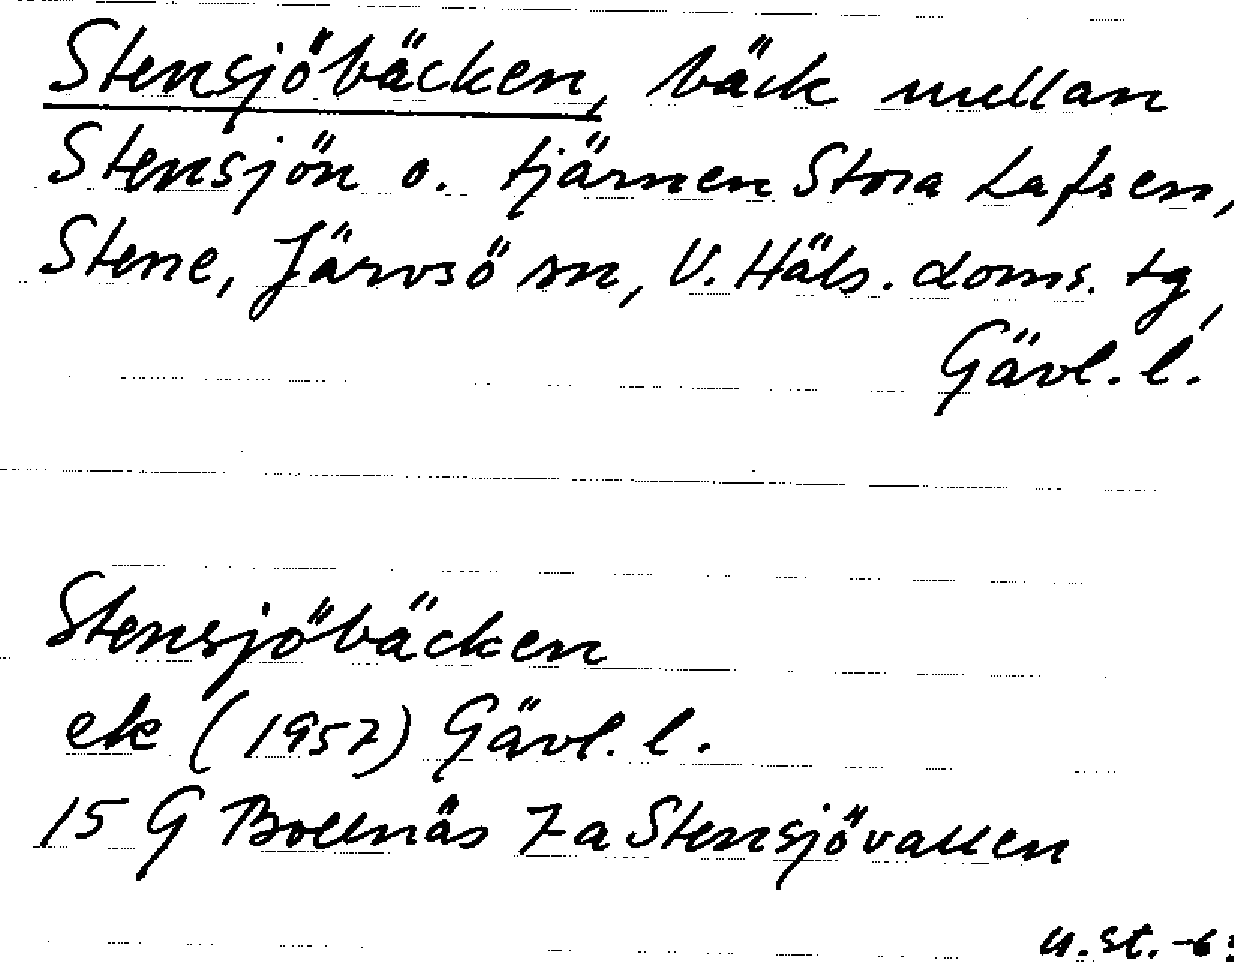 Stensjöbäcken, bäck mellan
Stensjön o. tjärnen Stora Lafsen,
Stene, Järvsö sn, V. Häls. doms. tg,
Gävl. l.
Stensjöbäcken
ek (1957) Gävl. l.
15 G Bollnäs 7 a Stensjövallen
U. St.